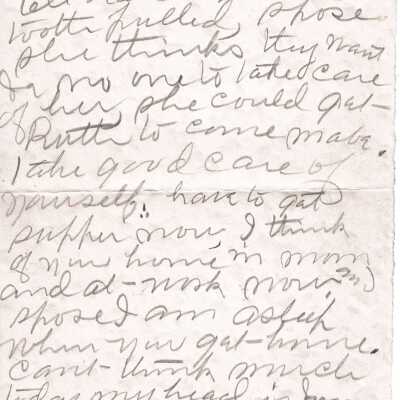 tooth pulled spose
she thinks they want
Is no one to take care
of her she could gat
Ruth to come mabe.
Take good care of
yourself. have to gat
supper now, I think
of you home in morn
and at work now, and
spose I am asleep
when you gat home.
Cant think much
today my head is